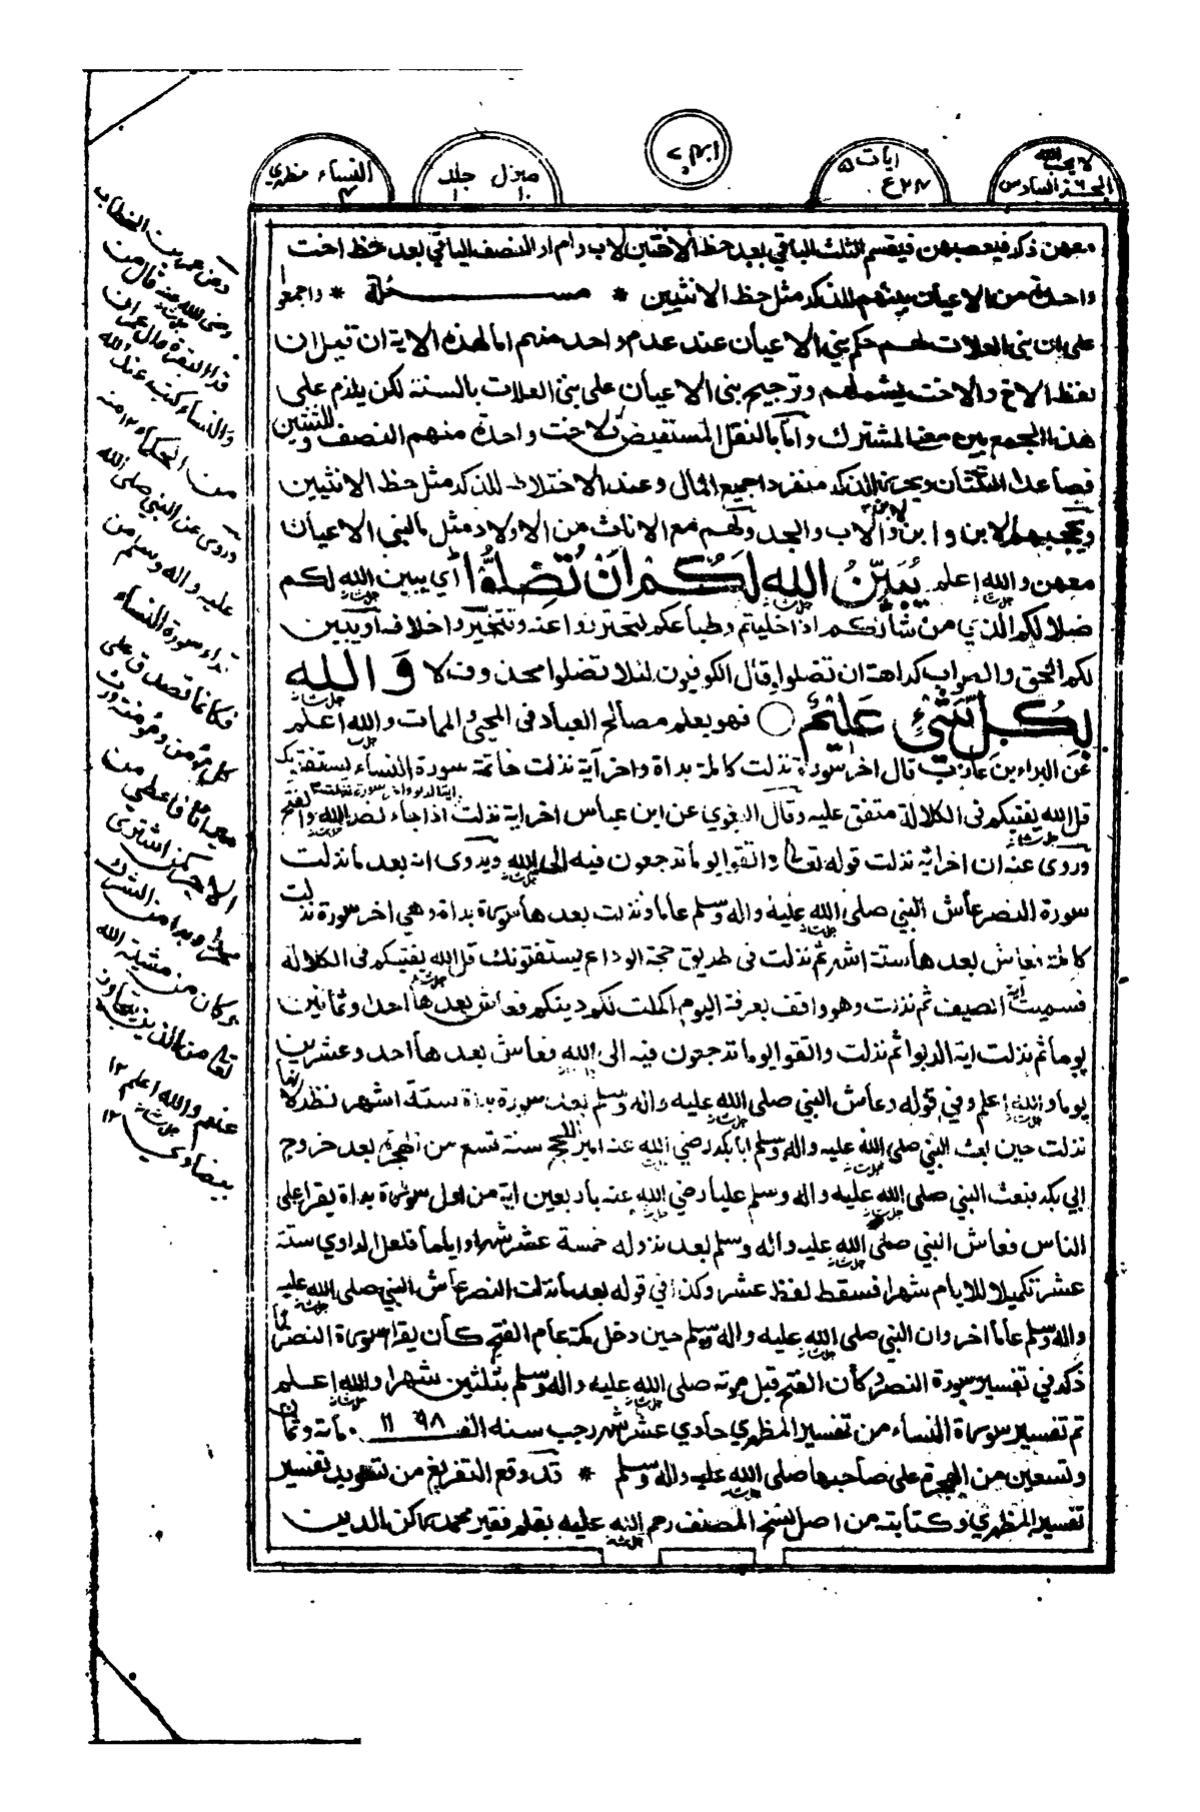 لا يحب الله
الجزء السادس
ايات
منزل جلد
النساء مظهري
معهن ذكر فيعصبهن فيقسم الثلث الباقي بعد حظ الاختين لاب وام او النصف الباقي بعد حظ اخت
واحدة من الاعيان بينهم للذكر مثل حظ الانثيين * مسئلة * واجمعوا
على ان بنى العلات لهم حكم بنى الاعيان عند عدم واحد منهم اما لهذه الاية ان قيل ان
لفظ الاخ والاخت يشملهم وترجيح بنى الاعيان على بنى العلات بالسنة لكن يلزم على
هذا الجمع بين معنى المشترك واما بالنقل المستفيض فلاخت واحدة منهم النصف وللثنتين
فصاعدا الثلثان ويحرز الذكر منفردا جميع المال وعند الاختلاط للذكر مثل حظ الانثيين
ويحجبهم الابن وابن الابن والاب والجد ولهم مع الاناث من الاولاد مثل ما لبني الاعيان
معهن والله اعلم يُبَيِّنُ الله لَكُمْ اَنْ تَضِلُّوْا اي يبين الله لكم
ضلالكم الذي من شانكم اذا خليتم وطباعكم لتحترزوا عنه وتتخيروا خلافه او يبين
لكم الحق والصواب كراهة ان تضلوا وقال الكوفيون لئلا تضلوا محذوف لا وَالله
بِكُلِّ شَيْءٍ عَلِيْمٌ ○ فهو يعلم مصالح العباد في المحيي والممات والله اعلم
عن البراء بن عازب قال اخر سورة نزلت كاملة براة واخر آية نزلت خاتمة سورة النساء يستفتونك
قل الله يفتيكم في الكلالة متفق عليه وقال البغوي عن ابن عباس اخر اية نزلت اية الربوا واخر سورة نزلت اذا جاء نصر الله والفتح
وروى عنه ان اخر اية نزلت قوله تعالى واتقوا يوما ترجعون فيه الى الله ويروى انه بعد ما نزلت
سورة النصر عاش النبي صلى الله عليه واله وسلم عاما ونزلت بعدها سورة براة وهي اخر سورة نزلت
كاملة فعاش بعدها ستة اشهر ثم نزلت في طريق حجة الوداع يستفتونك قل الله يفتيكم في الكلالة
فسميت اية الصيف ثم نزلت وهو واقف بعرفة اليوم اكملت لكم دينكم فعاش بعدها احدا وثمانين
يوما ثم نزلت اية الربوا ثم نزلت واتقوا يوما ترجعون فيه الى الله فعاش بعدها احد وعشرين
يوما والله اعلم وفي قوله وعاش النبي صلى الله عليه واله وسلم بعد سورة براة ستة اشهر نظر لانها
نزلت حين بعث النبي صلى الله عليه واله وسلم ابا بكر رضي الله عنه امير الحج سنة تسع من الهجرة بعد خروج
ابي بكر فبعث النبي صلى الله عليه واله وسلم عليا رضي الله عنه باربعين اية من اول سورة براة يقرا على
الناس فعاش النبي صلى الله عليه واله وسلم بعد نزوله خمسة عشر شهرا واياما فلعل الراوي ستة
عشر تكميلا للايام شهرا فسقط لفظ عشر وكذا في قوله بعد ما نزلت النصر عاش النبي صلى الله عليه
واله وسلم عاما اخر وان النبي صلى الله عليه واله وسلم حين دخل مكة عام الفتح كان يقرا سورة النصر كما
ذكر في تفسير سورة النصر وكان الفتح قبل موته صلى الله عليه واله وسلم بثلثين شهرا والله اعلم
تم تفسير سورة النساء من تفسير المظهري حادي عشر شهر رجب سنه الف ١١٩٨ ومائة وثمان
وتسعين من الهجرة على صاحبها صلى الله عليه واله وسلم * قد وقع التفريغ من تسويد تفسير
تفسير المظهري وكتابته من اصل نسخ المصنف رحم الله عليه بقلم فقير محمد ركن الدين
وعن عمر بن الخطاب
رضى الله عنه قال من
قرا البقرة وال عمران
والنساء كتب عند الله
من الحكماء ١٢ منه
وروى عن النبي صلى الله
عليه واله وسلم من
قراء سورة النساء
فكانما تصدق على
كل مؤمن ومؤمنة ورث
ميراثا واعطي من
الاجر كمن اشترى
محررا وبرا من الشرك
وكان من مشيئة الله
تعالى من الذين يتجاوز
عنهم والله اعلم ١٢
بيضاوي ١٢